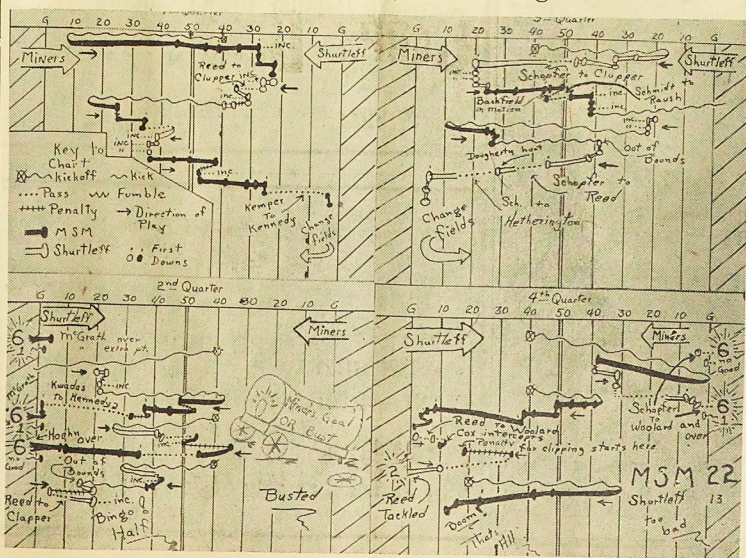 G 10 20 30 40 50 40 30 20 10 G
Miners
Shurtleff
INC.
Reed to
Clupper INC.
inc.
INC
INC
"
inc.
Key to
Chart
kickoff Kick
Pass Fumble
Penalty Direction of
Play
MSM
Shurtleff First
Downs
Kemper
To
Kennedy
Change
fields
3rd Quarter
G 10 20 30 40 50 40 30 20 10 G
Miners
Shurtleff
inc.
"
Schopfer to Clupper
Schmidt to
Raush
Backfield
in motion
inc.
inc.
INC.
"
Dougherty hurt
Out of
Bounds
Schopfer to
Reed
Sch. to
Hetherington
Change
Fields
2nd Quarter
G 10 20 30 40 50 40 30 20 10 G
Shurtleff
Miners
6
1
McGrath over
" extra pt.
INC.
McGrath
Kwadas
to Kennedy
6
1
Hoehn over
6
no
Good
Out of
Bounds
Reed to
Clapper
inc.
Bingo
Half
Miners Goal
OR Bust
Busted
4th Quarter
G 10 20 30 40 50 40 30 20 10 G
Shurtleff
Miners
6
no
Good
Schopferl
To
Woolard and
over
6
1
Reed to Woolard
Cox intercepts
Penalty for clipping starts here
2
Reed
Tackled
MSM 22
Shurtleff 13
too
bad
Boom
That's
All